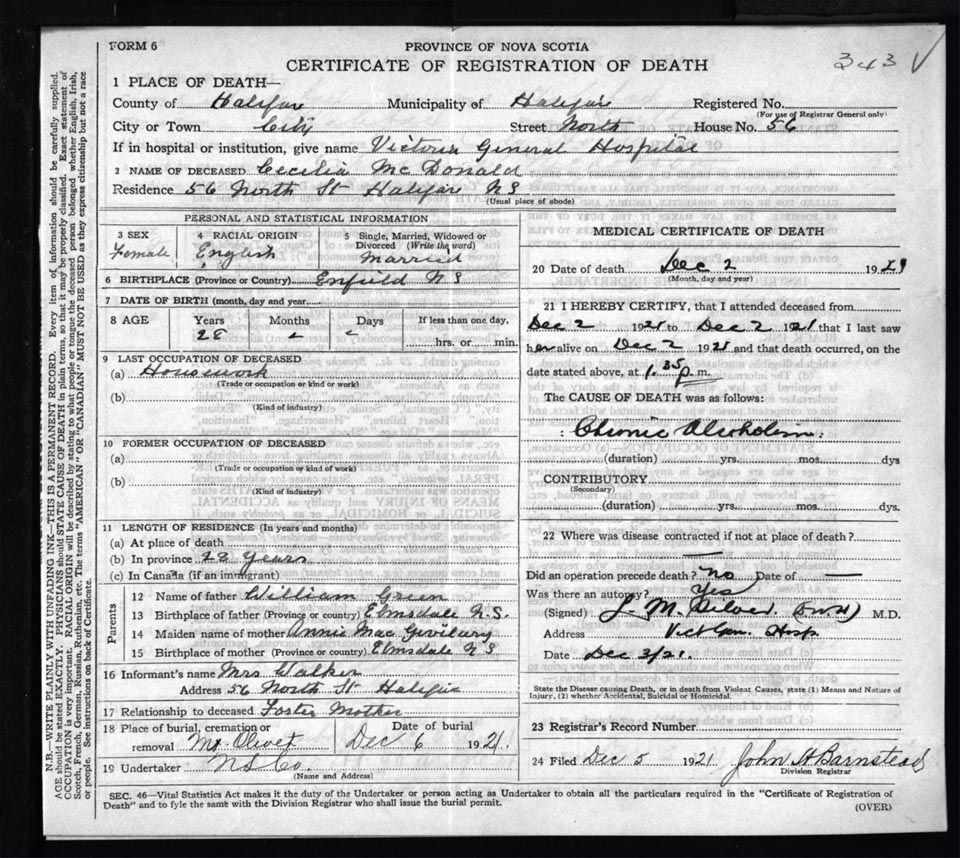 FORM 6
PROVINCE OF NOVA SCOTIA
343 √
CERTIFICATE OF REGISTRATION OF DEATH
1 PLACE OF DEATH—
County of Halifax Municipality of Halifax Registered No.
(For use of Registrar General only)
City or Town City Street North House No. 56
If in hospital or institution, give name Victoria General Hospital
2 NAME OF DECEASED Cecilia McDonald
Residence 56 North St Halifax NS
(Usual place of abode)
PERSONAL AND STATISTICAL INFORMATION
3 SEX 4 RACIAL ORIGIN 5 Single, Married, Widowed or Divorced (Write the word)
Female English Married
6 BIRTHPLACE (Province or Country) Enfield NS
7 DATE OF BIRTH (month, day and year)
8 AGE Years Months Days If less than one day,
28 hrs. or min.
9 LAST OCCUPATION OF DECEASED
(a) Housework
(Trade or occupation or kind or work)
(b)
(Kind of industry)
10 FORMER OCCUPATION OF DECEASED
(a)
(Trade or occupation or kind of work)
(b)
(Kind of industry)
11 LENGTH OF RESIDENCE (In years and months)
(a) At place of death
(b) In province 28 Years
(c) In Canada (if an immigrant)
Parents
12 Name of father William Green
13 Birthplace of father (Province or country) Elmsdale N.S.
14 Maiden name of mother Annie Mac
15 Birthplace of mother (Province or country) Elmsdale NS
16 Informant's name Mrs Walker
Address 56 North St Halifax
17 Relationship to deceased Foster Mother
18 Place of burial, cremation or removal Mt. Olivet Date of burial Dec 6 1921.
19 Undertaker NS Co.
(Name and Address)
MEDICAL CERTIFICATE OF DEATH
20 Date of death Dec 2 1921
(Month, day and year)
21 I HEREBY CERTIFY, that I attended deceased from
Dec 2 1921 to Dec 2 1921 that I last saw
her alive on Dec 2 1921 and that death occurred, on the
date stated above, at 1.35 p.m.
The CAUSE OF DEATH was as follows:
Chronic Alcoholism.
(duration) yrs. mos. dys
CONTRIBUTORY
(Secondary)
(duration) yrs. mos. dys.
22 Where was disease contracted if not at place of death?
—
Did an operation precede death? no Date of —
Was there an autopsy? Yes
(Signed) M. M.D.
Address Vict Gen. Hosp.
Date Dec 3/21.
State the Disease causing Death, or in death from Violent Causes, state (1) Means and Nature of
Injury, (2) whether Accidental, Suicidal or Homicidal.
23 Registrar's Record Number
24 Filed Dec 5 1921 John H Barnstead
Division Registrar
SEC. 46—Vital Statistics Act makes it the duty of the Undertaker or person acting as Undertaker to obtain all the particulars required in the "Certificate of Registration of
Death" and to fyle the same with the Division Registrar who shall issue the burial permit. (OVER)
N.B.—WRITE PLAINLY WITH UNFADING INK—THIS IS A PERMANENT RECORD. Every item of information should be carefully supplied.
AGE should be stated EXACTLY. PHYSICIANS should STATE CAUSE OF DEATH in plain terms, so that it may be properly classified. Exact statement of
OCCUPATION is very important. RACIAL ORIGIN will be described by stating to what people or tongue the deceased person belonged whether English, Irish,
Scotch, French, German, Russian, Ruthenian, etc. The terms "AMERICAN" OR "CANADIAN" MUST NOT BE USED as they express citizenship but not a race
or people. See instructions on back of Certificate.